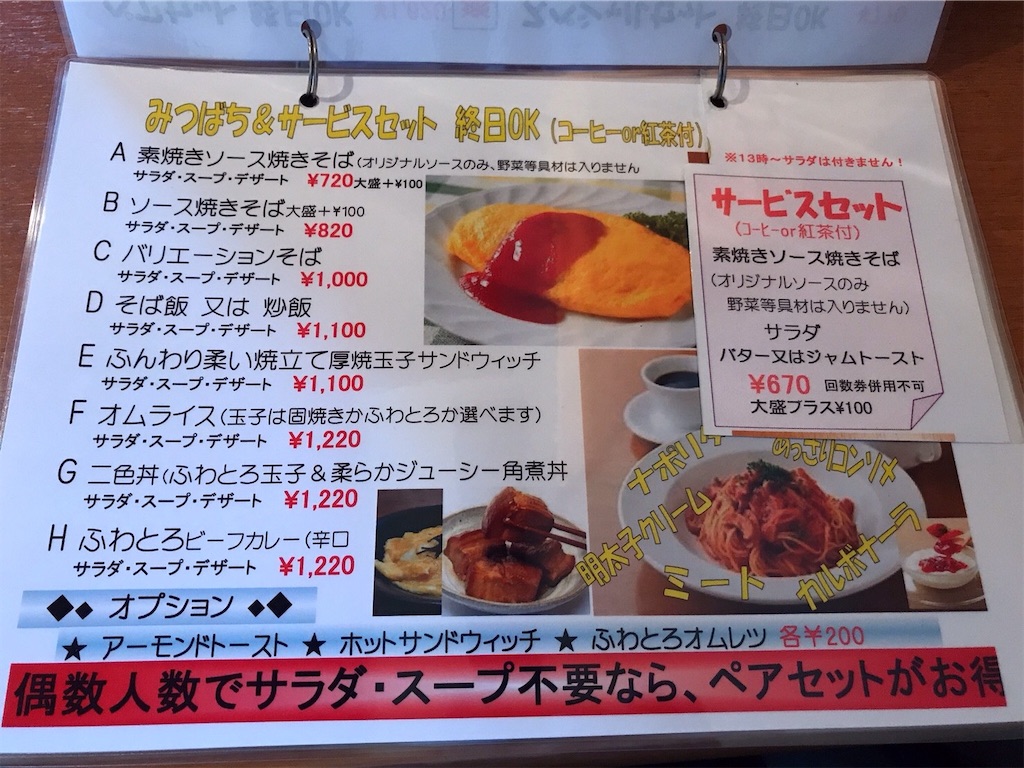 みつばち&サービスセット 終日OK (コーヒーor紅茶付)
A 素焼きソース焼きそば(オリジナルソースのみ、野菜等具材は入りません
サラダ・スープ・デザート ¥720大盛+¥100
B ソース焼きそば大盛+¥100
サラダ・スープ・デザート ¥820
C バリエーションそば
サラダ・スープ・デザート ¥1,000
D そば飯 又は 炒飯
サラダ・スープ・デザート ¥1,100
E ふんわり柔い焼立て厚焼玉子サンドウィッチ
サラダ・スープ・デザート ¥1,100
F オムライス(玉子は固焼きかふわとろか選べます)
サラダ・スープ・デザート ¥1,220
G 二色丼(ふわとろ玉子&柔らかジューシー角煮丼
サラダ・スープ・デザート ¥1,220
H ふわとろビーフカレー(辛口
サラダ・スープ・デザート ¥1,220
※13時~サラダは付きません!
サービスセット
(コーヒーor紅茶付)
素焼きソース焼きそば
(オリジナルソースのみ
野菜等具材は入りません)
サラダ
バター又はジャムトースト
¥670 回数券併用不可
大盛プラス¥100
ナポリタ
あっさりコンソメ
明太子クリーム
ミート
カルボナーラ
◆◆ オプション ◆◆
★ アーモンドトースト ★ ホットサンドウィッチ ★ ふわとろオムレツ 各¥200
偶数人数でサラダ・スープ不要なら、ペアセットがお得